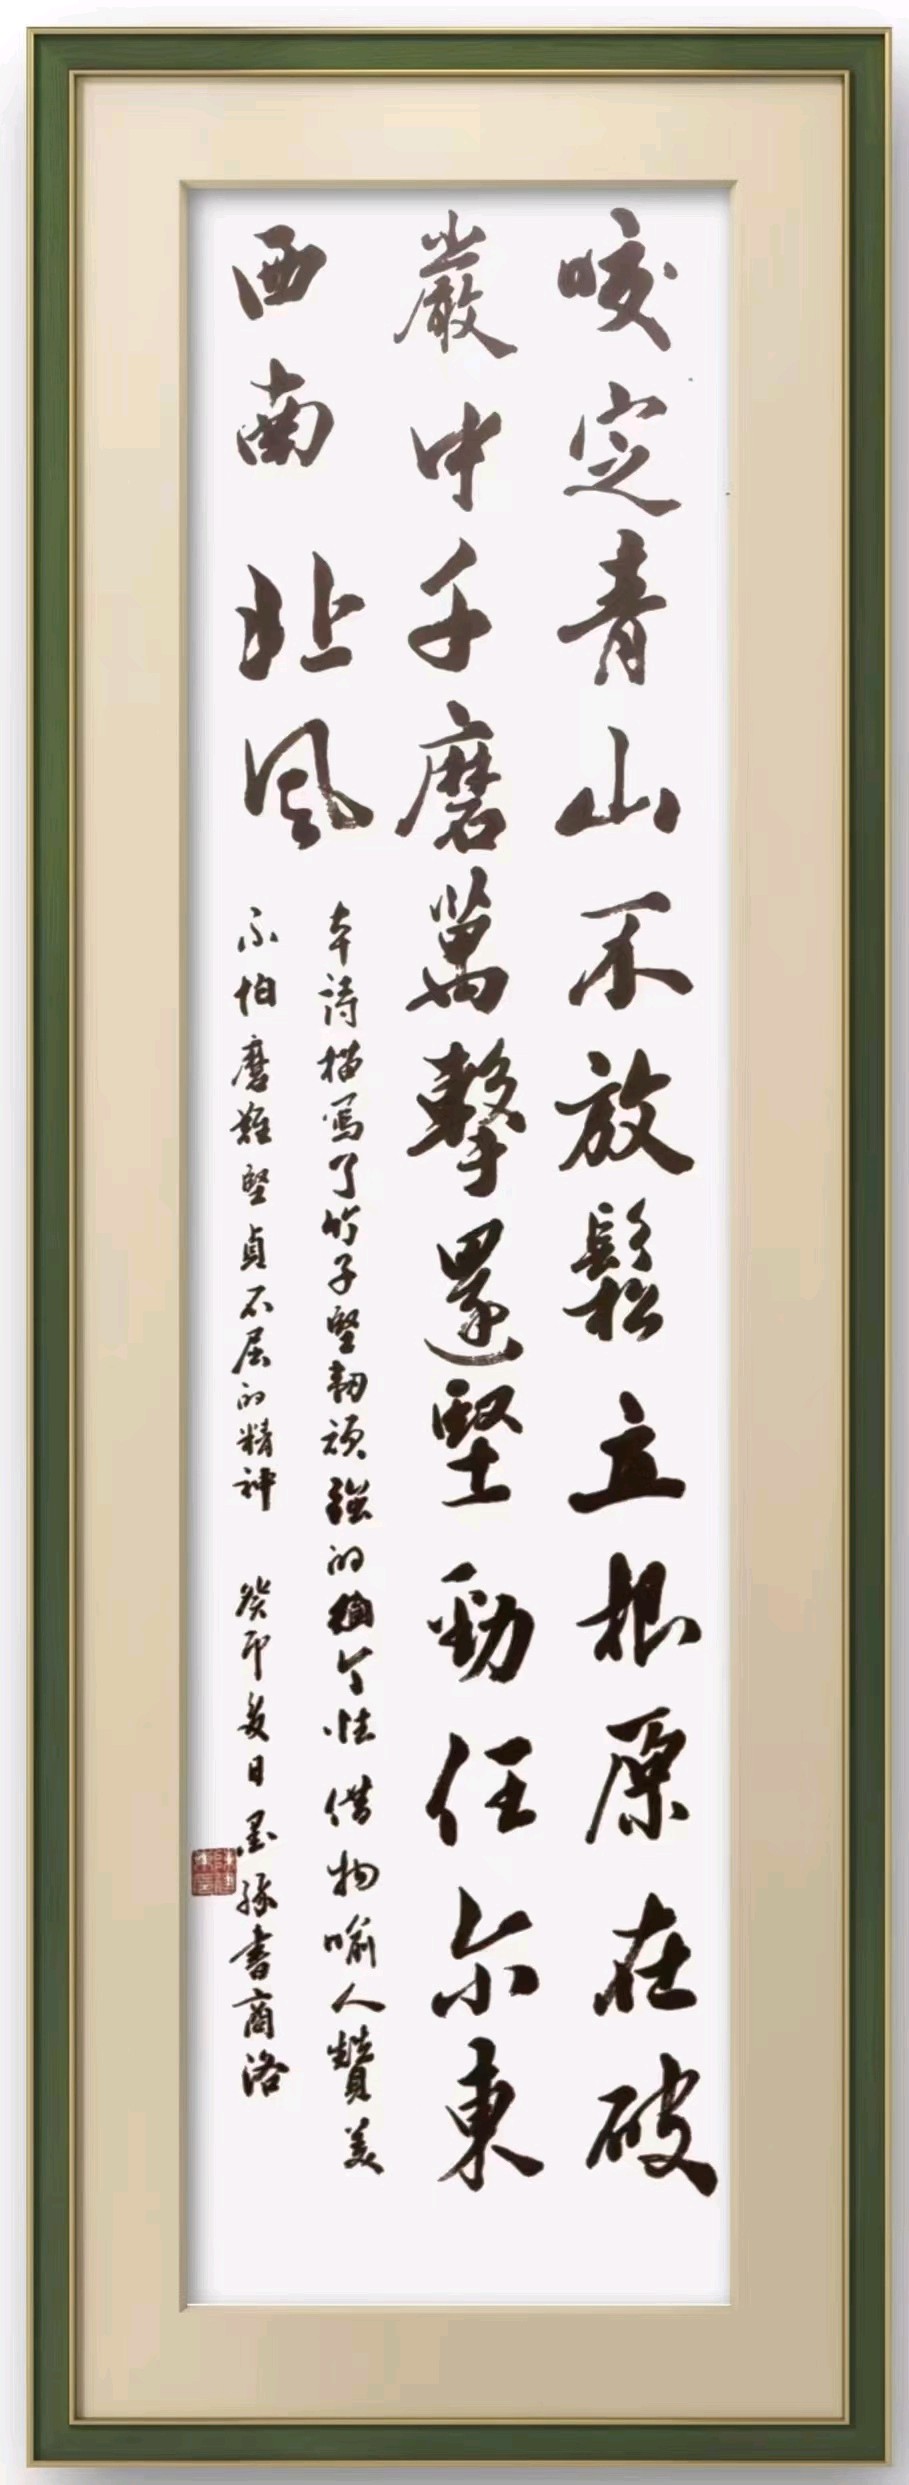 咬定青山不放鬆立根原在破
巖中千磨萬擊還堅勁任尔東
西南北风
本詩描写了竹子堅韌頑強的個个性借物喻人贊美
不怕磨難堅貞不屈的精神 癸卯夏日墨缘書商洛